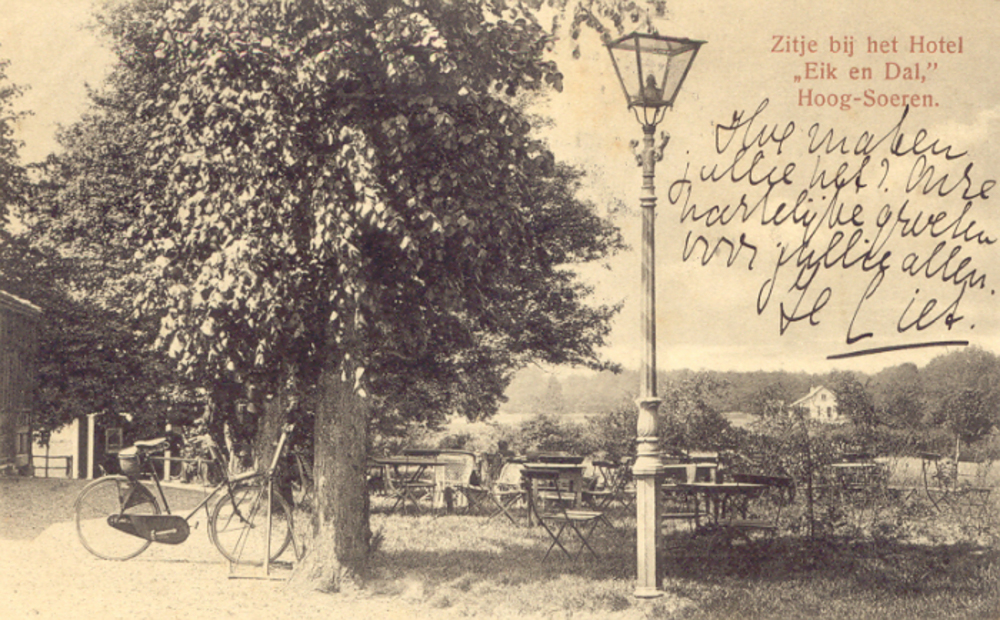 Zitje bij het Hotel
„Eik en Dal,”
Hoog-Soeren.
Hoe maken
jullie het? Onze
hartelijke groeten
voor jullie allen.
Je Liet.